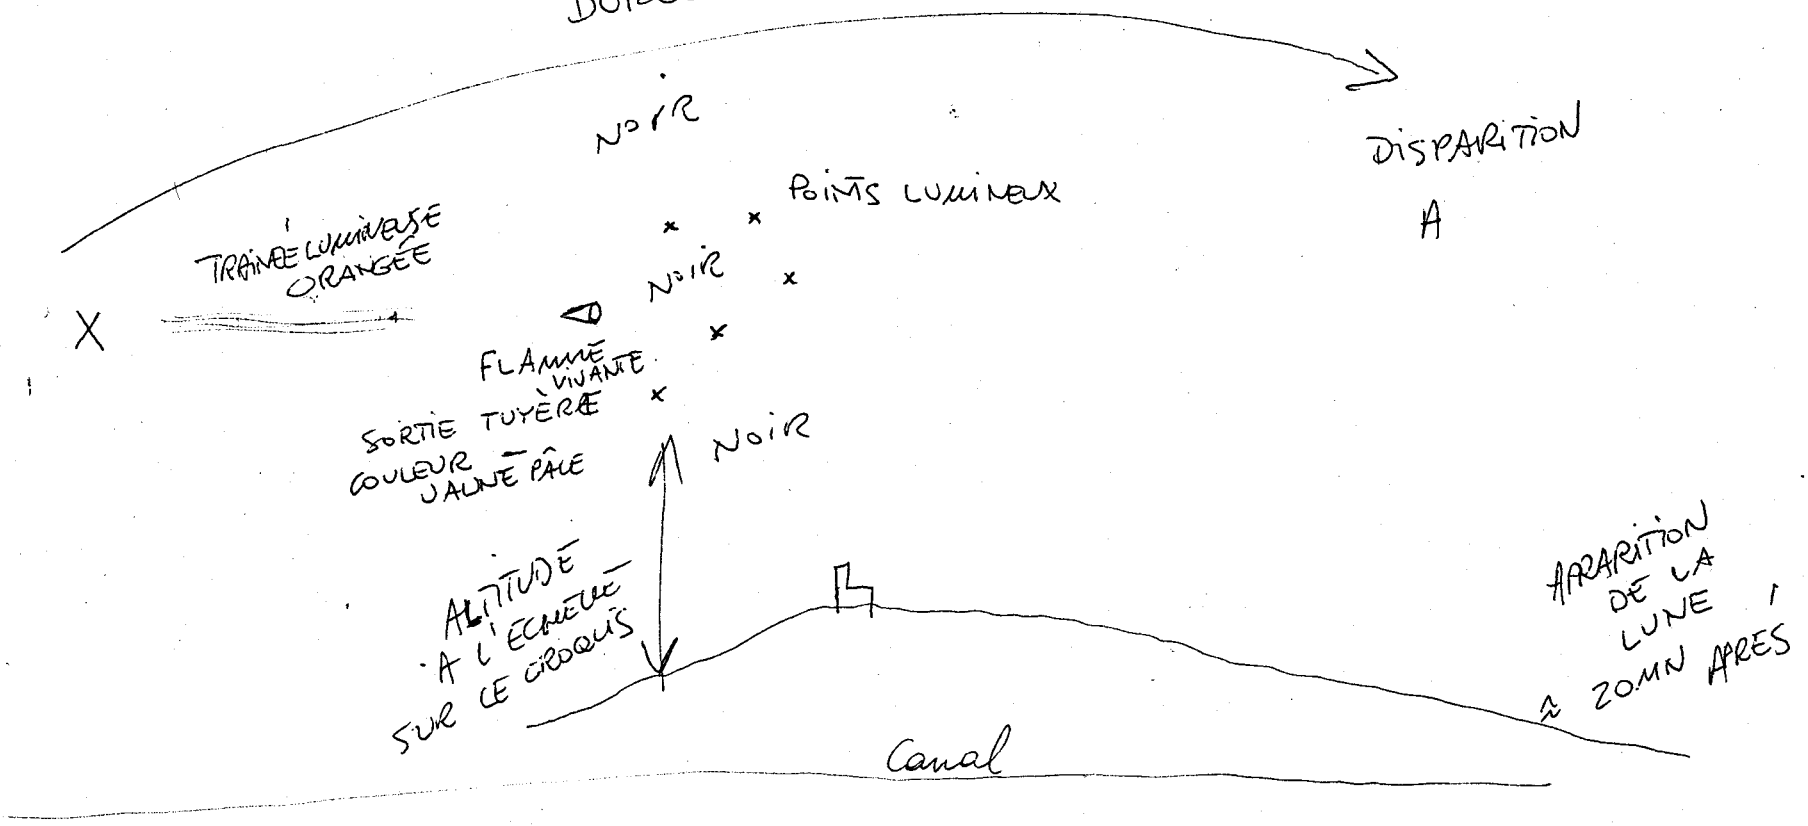 NOIR
DISPARITION
A
POINTS LUMINEUX
TRAINÉE LUMINEUSE
ORANGÉE
NOIR
X
FLAMME
VIVANTE
SORTIE TUYÈRE
COULEUR
JAUNE PÂLE
NOIR
ALTITUDE
A L'ECHELLE
SUR LE CROQUIS
APPARITION
DE LA
LUNE
≈ 20MN APRÉS
Canal